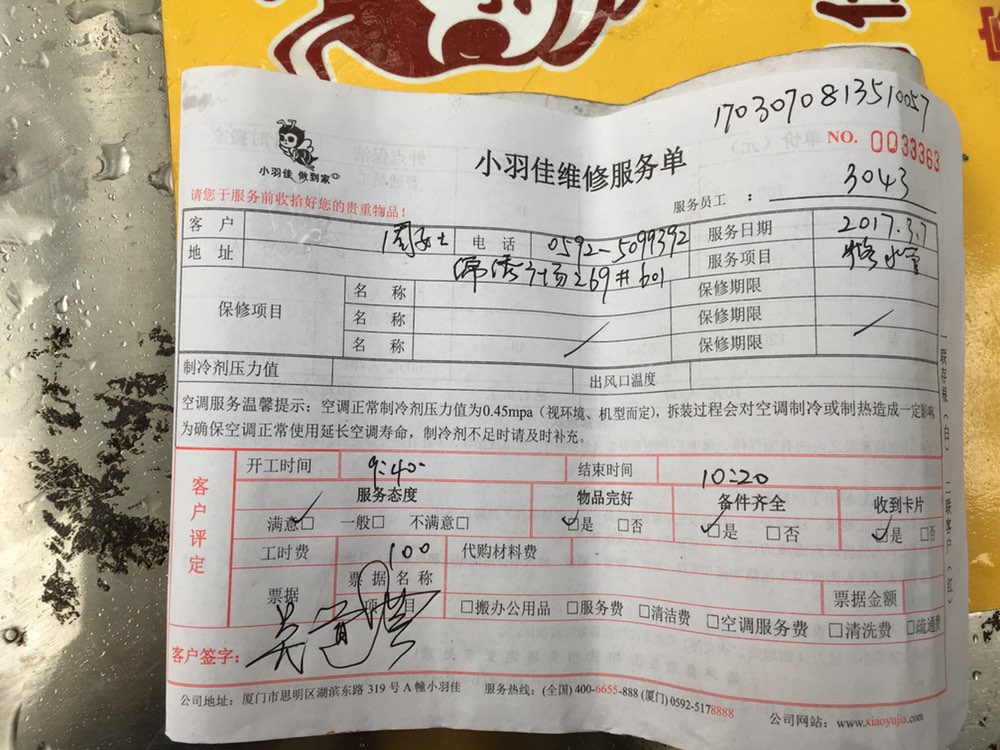 170307081351 0057
NO. 0033363
小羽佳 做到家
小羽佳维修服务单
服务员工 : 3043
请您于服务前收拾好您的贵重物品!
客 户 周女士 电 话 0592-5099392 服务日期 2017.3.7
地 址 锦绣广场269#601 服务项目
保修项目 名 称 保修期限
名 称 保修期限
名 称 保修期限
制冷剂压力值 出风口温度
空调服务温馨提示:空调正常制冷剂压力值为0.45mpa(视环境、机型而定),拆装过程会对空调制冷或制热造成一定影响
为确保空调正常使用延长空调寿命,制冷剂不足时请及时补充。
客户评定
开工时间 9:40 结束时间 10:20
服务态度 物品完好 备件齐全 收到卡片
满意☑ 一般□ 不满意□ ☑是 □否 ☑是 □否 ☑是 □否
工时费 100 代购材料费
票据 票据名称 票据金额
项 目 □搬办公用品 □服务费 □清洁费 □空调服务费 □清洗费 □疏通费
客户签字:
公司地址:厦门市思明区湖滨东路 319 号 A 幢小羽佳 服务热线:(全国) 400-6655-888 (厦门) 0592-5178888
公司网站:www.xiaoyujia.com
一联存根(白) 二联客户(红)